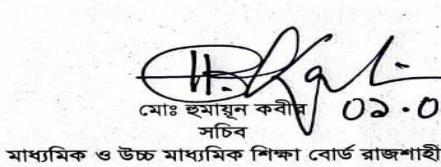 মোঃ হুমায়ূন কবীর ০১.০
সচিব
মাধ্যমিক ও উচ্চ মাধ্যমিক শিক্ষা বোর্ড রাজশাহী